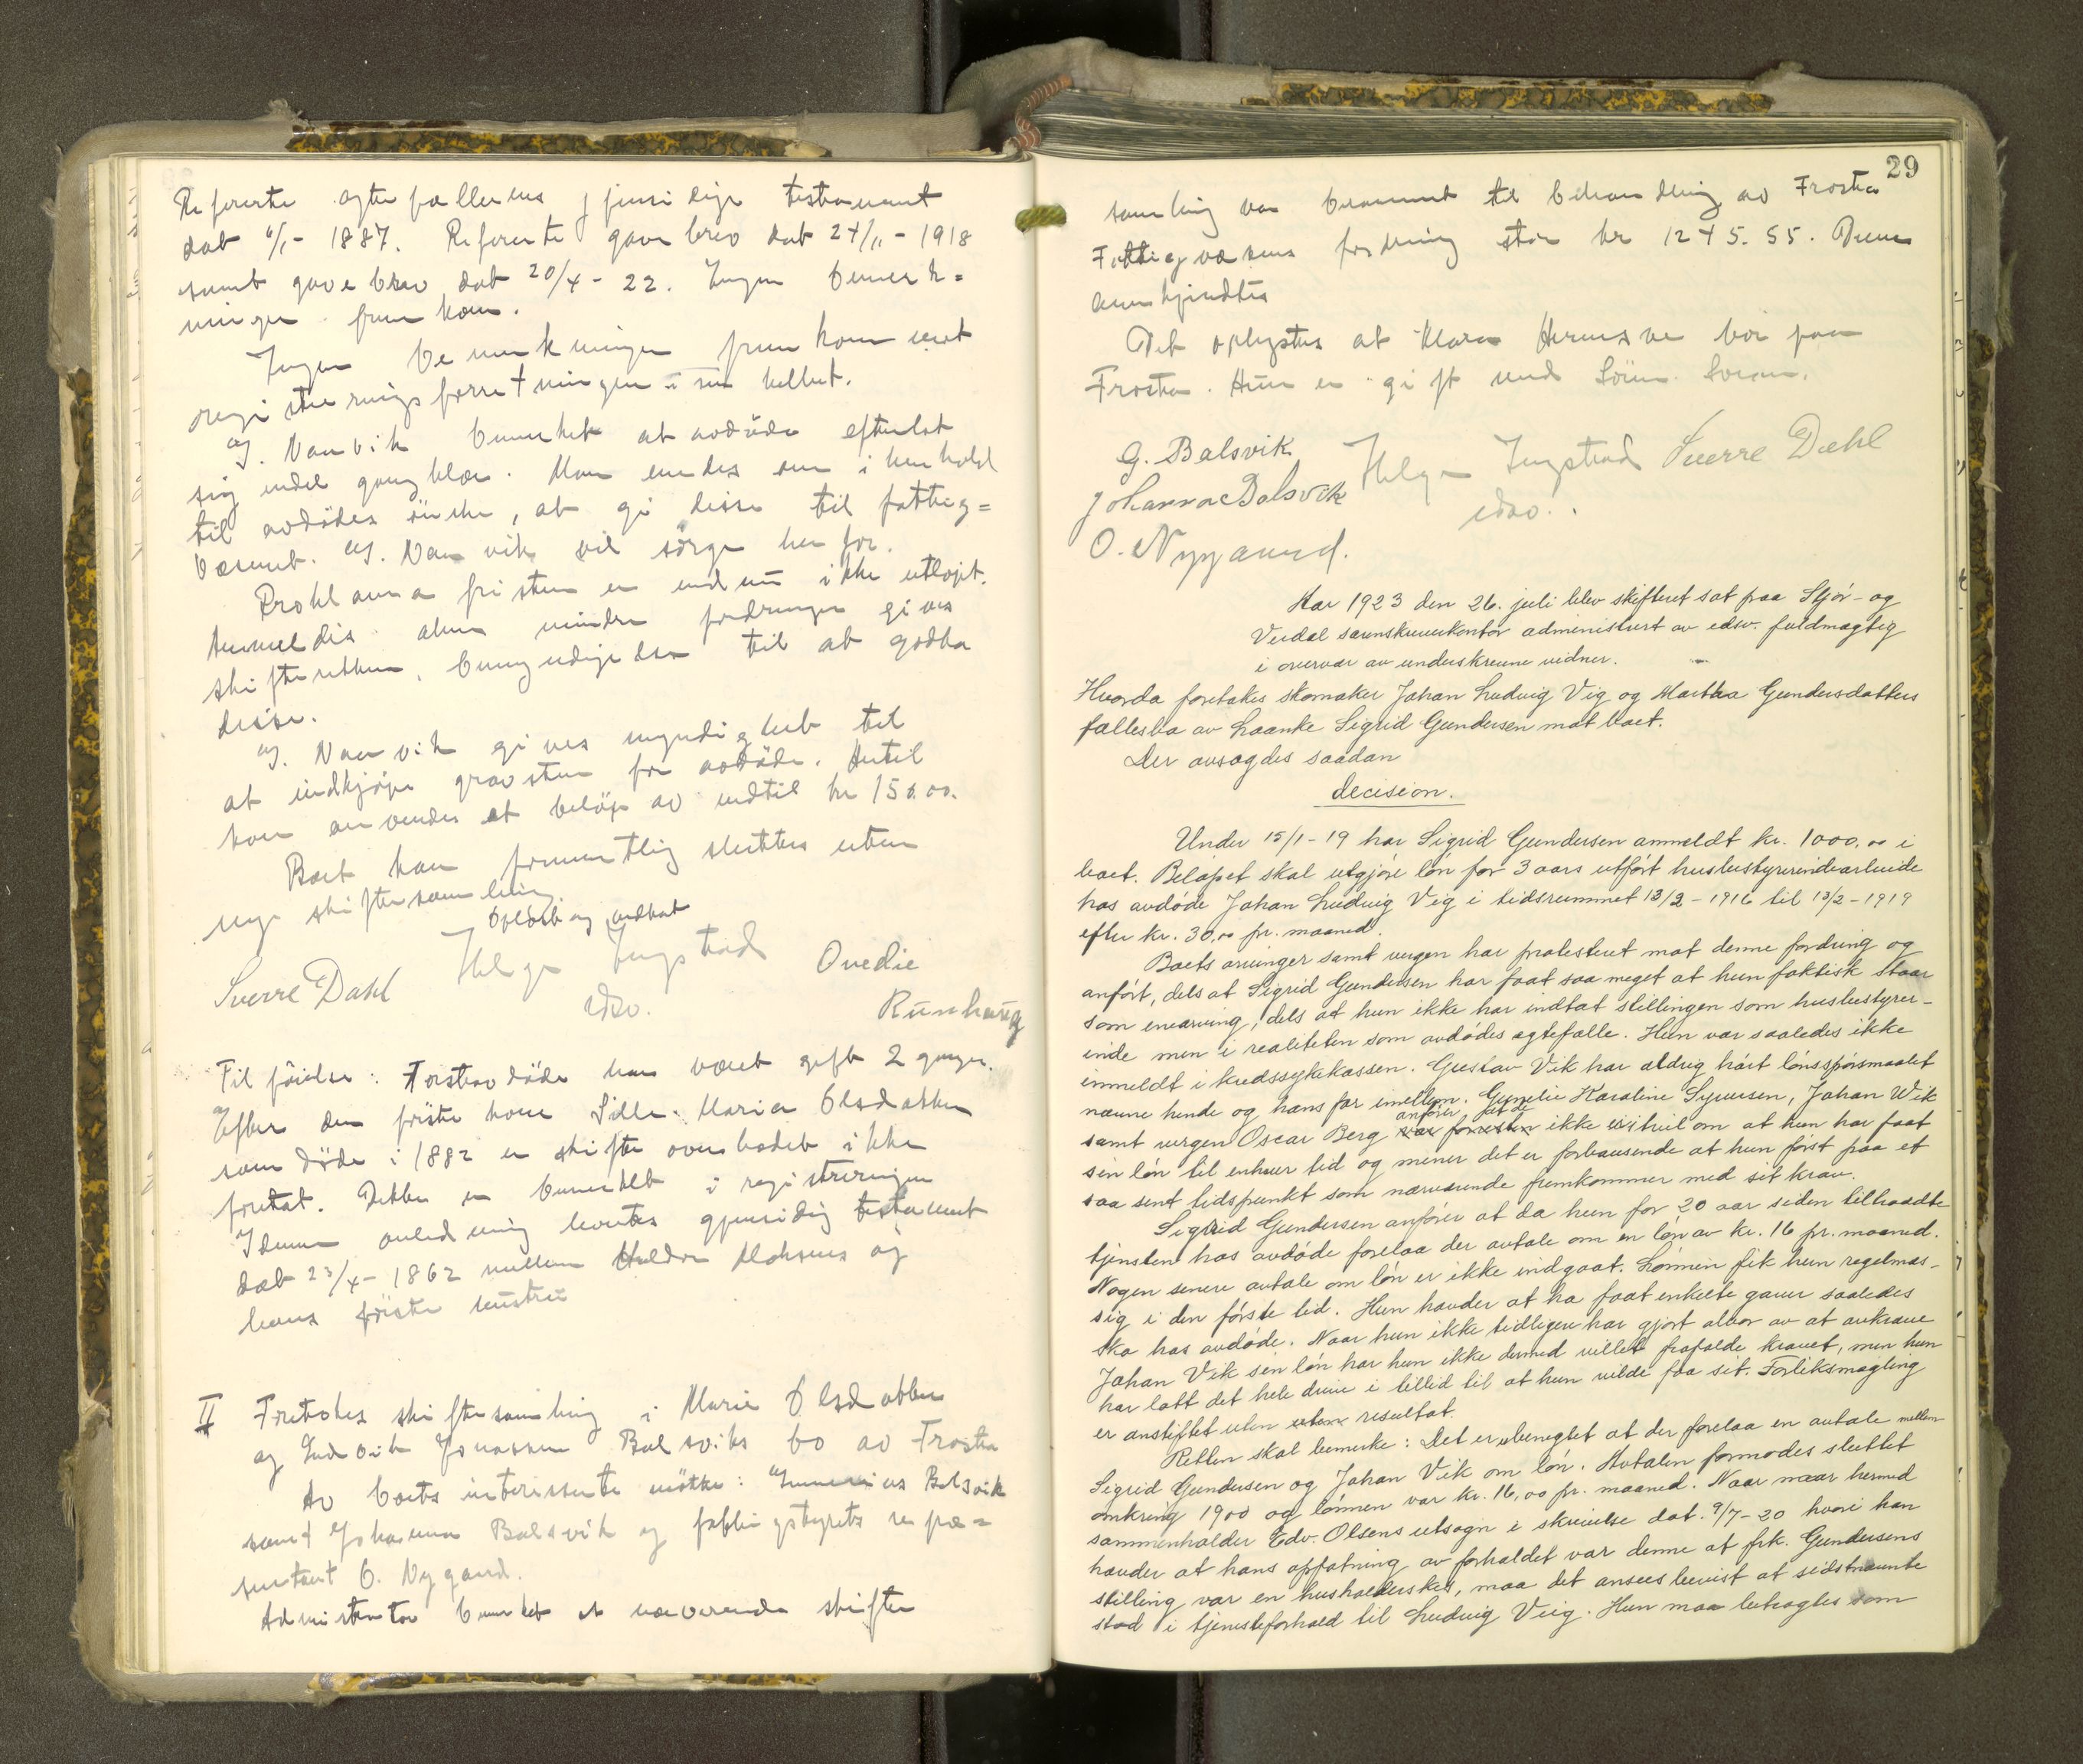 Refererte egtefællenes gjensidige testament
dat 6/1- 1887. Refererte gavebrev dat 24/11 - 1918
samt gavebrev dat 20/4 - 22. Ingen bemerk=
ninger fremkom.
Ingen bemerkninger fremkom mot
registreringsforretningen i sin helhet.
J. Nanvik bemerket at avdöde efterlot
sig endel gangklær. Man enedes om i henhold
til avdödes önske, at gi disse til fattig=
væsenet. J. Nanvik vil sörge herfor.
Proklama fristen er endnu ikke utlöpt.
Anmeldes alene mindre fordringer gives
skifteretten bemyndigelse til at godta
disse.
J. Nanvik gives myndighet til
at indkjöpe gravsten for avdöde. Hertil
kan anvendes et belöp av indtil kr 150.00.
Boet kan formentlig sluttes uten
nye skiftesamling
Oplæst og vedtat
Sverre Dahl Helge Ingstad Ovedie
edsv. Runhaug
Tilföielse: Förstavdöde har været gift 2 ganger.
Efter den förste kone Sille Maria Olsdatter
som döde i 1882 er skifte overhodet ikke
foretat. Dette er bemerket i registreringen
I denne anledning levertes gjensidig testament
dat 23/4 - 1862 mellem Haldor Aloksens og
hans förste hustru
II Foretokes skiftesamling i Marie Olsdatter
og Ludvik Jonassen Balsviks bo av Frosta
Av boets interessenter mötte: Balsvik
samt Johanna Balsvik og fattigstyrets repræ=
sentant O. Nygaard.
Administrator bemerket at nærværende skifte
29
samling var berammet til behandling av Frosta
Fattigvæsens fordring stor kr 1245.55. Denne
anerkjendtes
Det oplystes at Klara bor paa
Frosta. Hun er gift med Sörn
G. Balsvik Helge Ingstad Sverre Dahl
Johanna Balsvik edsv.
O. Nygaard.
Aar 1923 den 26. juli blev skifteret sat paa Stjór- og
Verdal sorenskriverkontor administrert av edsv. fuldmægtig
i overvær av underskrevne vidner.
Hvorda foretakes skomaker Johan Ludvig Vig og Martha Gundersdatters
fællesbo av Laanke Sigrid Gundersen mot boet.
Der avsagdes saadan
decision.
Under 15/1 - 19 har Sigrid Gundersen anmeldt kr. 1000,00 i
boet. Beløpet skal utgjøre lón for 3 aars utfórt husbestyrerindearbeide
hos avdøde Johan Ludvig Vig i tidsrummet 13/2 - 1916 til 13/2 - 1919
efter kr. 30,00 pr. maaned.
Boets arvinger samt vergen har protestert mot denne fordring og
anfórt, dels at Sigrid Gundersen har faat saa meget at hun faktisk staar
som enearving, dels at hun ikke har indtat stillingen som husbestyrer-
inde men i realiteten som avdódes egtefælle. Hun var saaledes ikke
inmeldt i kredssykekassen. Gustav Vik har aldrig hórt lónsspórsmaalet
nævne hende og hans far imellem. Gunelie Karoline Syversen, Johan Wik
samt vergen Oscar Berg anfórer ikke tvil om at hun har faat
sin lón til enhver tid og mener det er forbausende at hun fórst paa et
saa sent tidspunkt som nærværende fremkommer med sit krav.
Sigrid Gundersen anfórer at da hun for 20 aar siden tiltraadte
tjenesten hos avdóde forelaa der avtale om en lón av kr. 16 pr. maaned.
Nogen senere avtale om lón er ikke indgaat. Lónnen fik hun regelmæs-
sig i den fórste tid. Hun hævder at ha faat enkelte gaver saaledes
sko hos avdóde. Naar hun ikke tidligere har gjort alvor av at avkræve
Johan Vik sin lón har hun ikke dermed villet frafalde kravet, men hun
har latt det hele drive i tillid til at hun vilde faa sit. Forliksmægling
er anstiftet uten resultat.
Retten skal bemerke: Det er ubenegtet at der forelaa en avtale mellem
Sigrid Gundersen og Johan Vik om lón. Avtalen formodes sluttet
omkring 1900 og lónnen var kr. 16,00 pr. maaned. Naar man hermed
sammenholder Edv. Olsens utsagn i skrivelse dat. 9/7-20 hvori han
hævder at hans opfatning av forholdet var denne at frk. Gundersens
stilling var en husholderskes, maa det ansees bevist at sidstnævnte
stod i tjenesteforhold til Ludvig Viig. Hun maa betragtes som